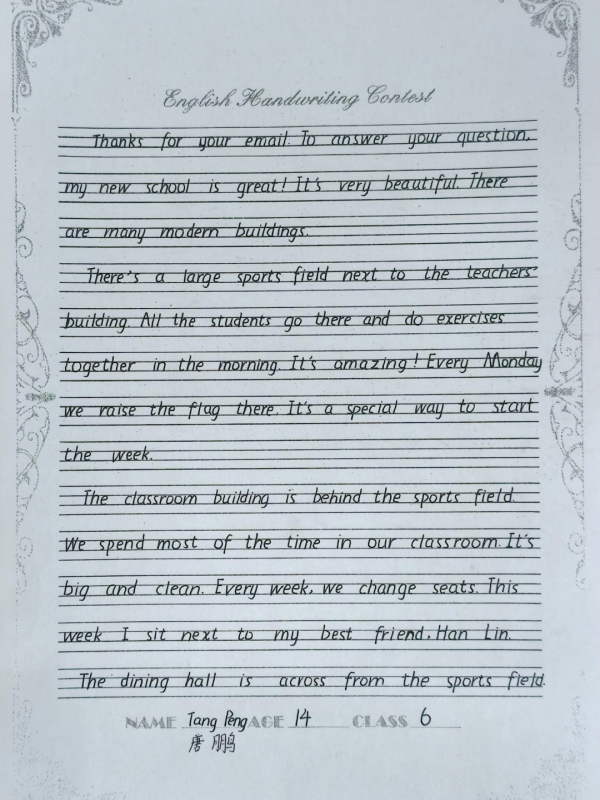 English Handwriting Contest
Thanks for your email. To answer your question,
my new school is great! It's very beautiful. There
are many modern buildings.
There's a large sports field next to the teachers'
building. All the students go there and do exercises
together in the morning. It's amazing! Every Monday
we raise the flag there. It's a special way to start
the week.
The classroom building is behind the sports field.
We spend most of the time in our classroom. It's
big and clean. Every week, we change seats. This
week I sit next to my best friend, Han Lin.
The dining hall is across from the sports field.
NAME Tang Peng AGE 14 CLASS 6
唐鹏